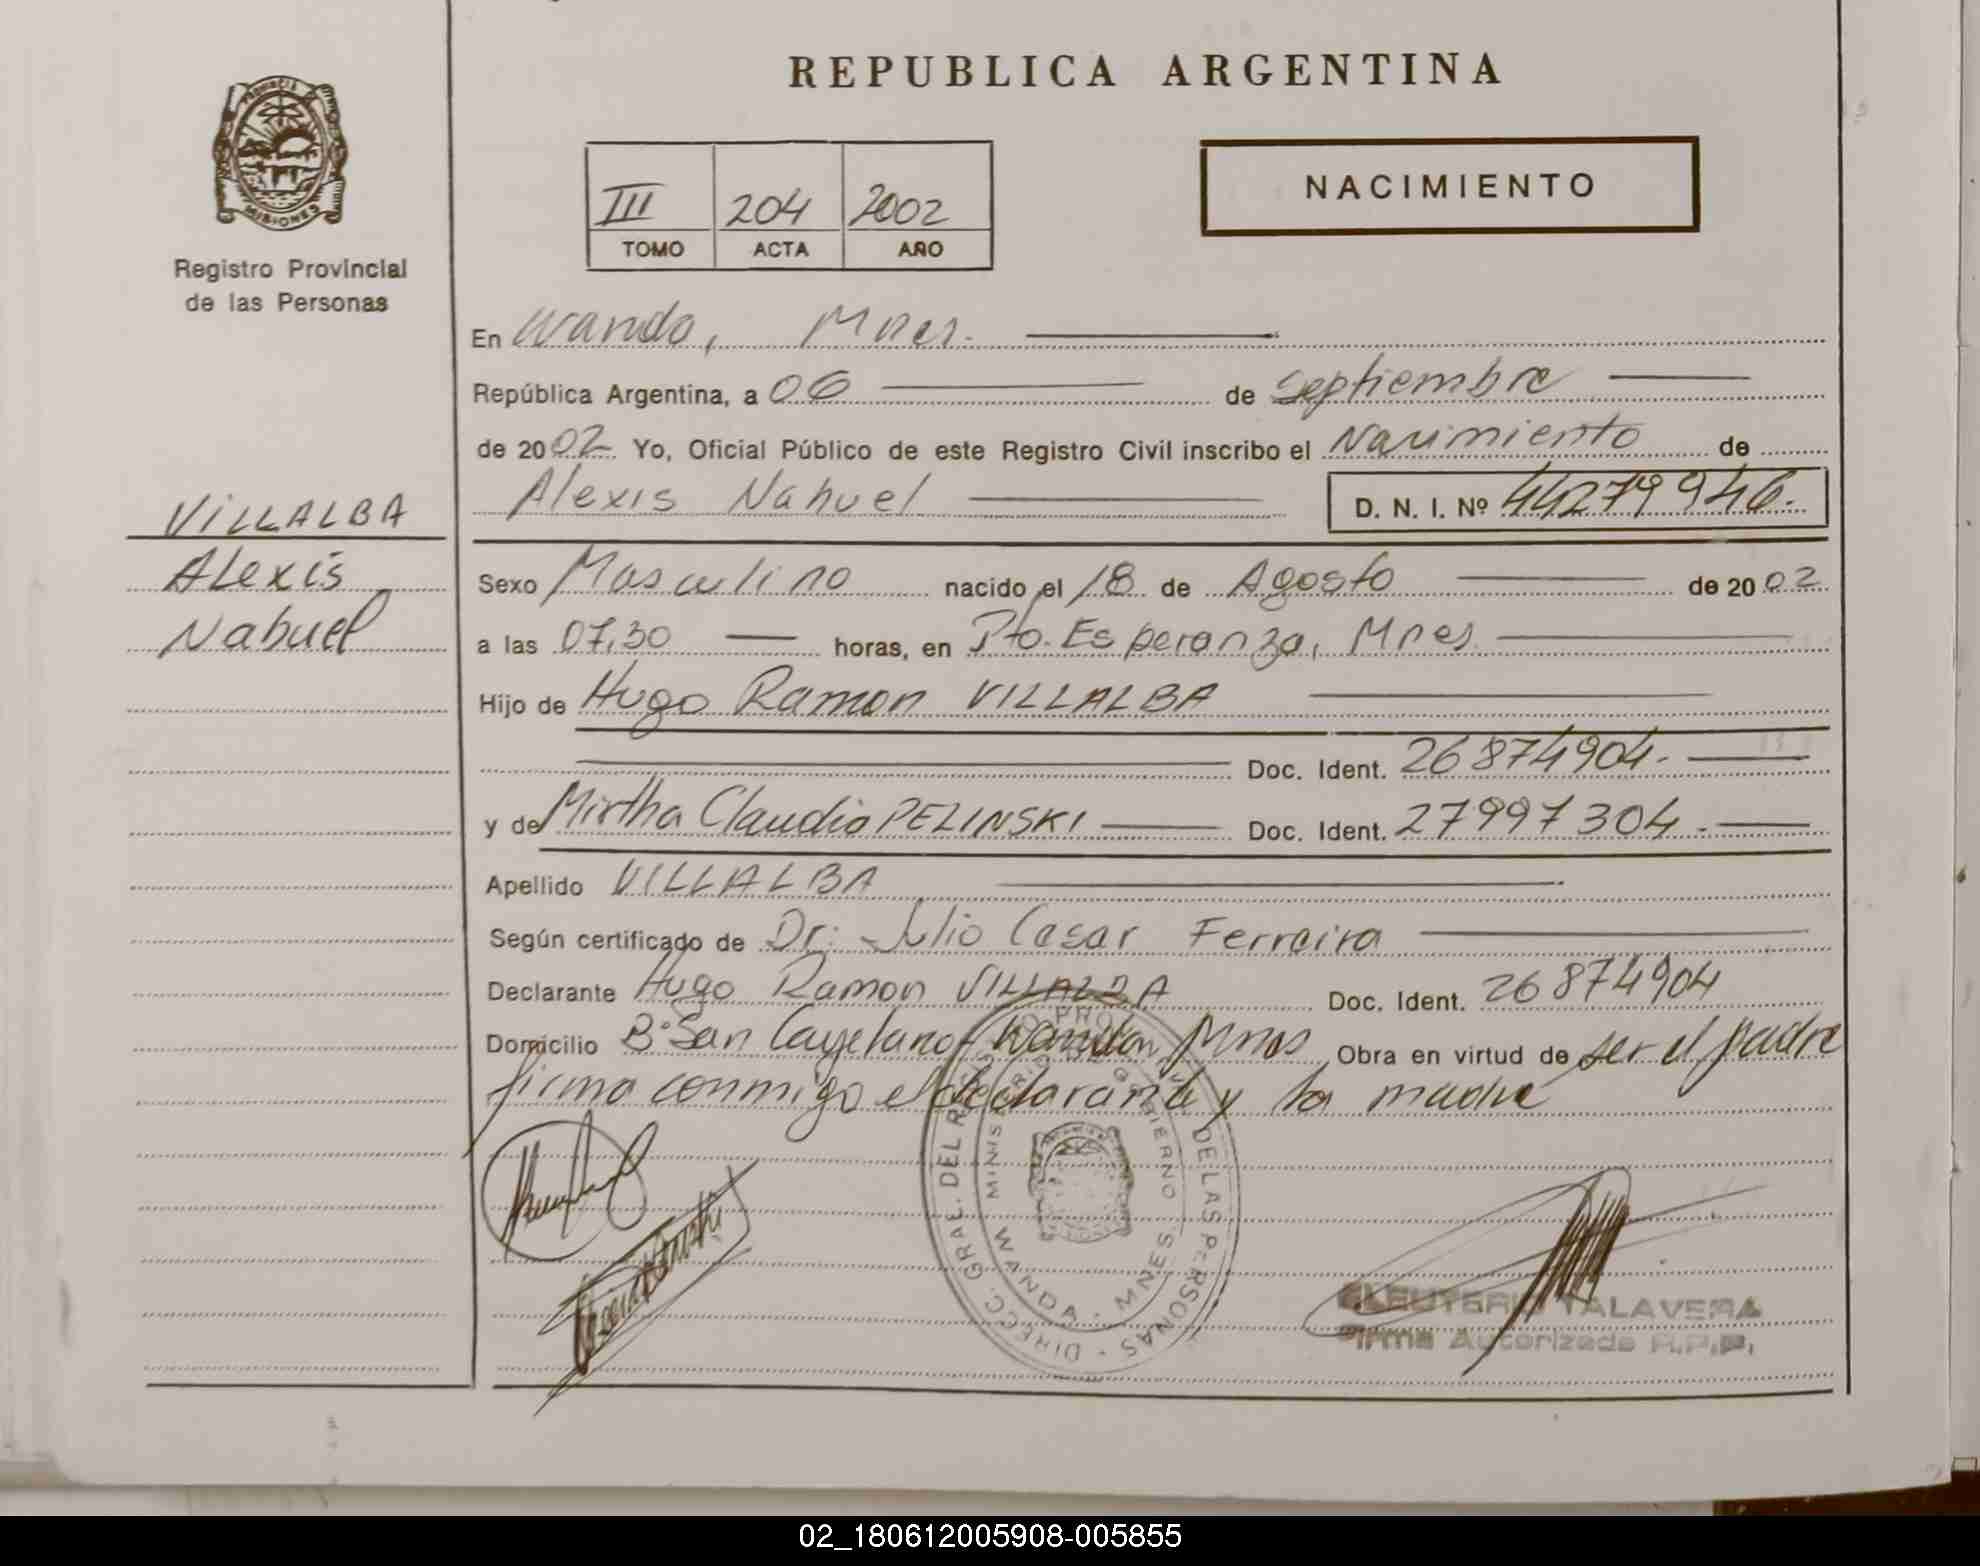 REPUBLICA ARGENTINA
PROVINCIA DE
MISIONES
Registro Provincial
de las Personas
III 204 2002
TOMO ACTA AÑO
NACIMIENTO
VILLALBA
Alexis
Nahuel
En Wanda, Mnes.
República Argentina, a 06 de Septiembre
de 2002 Yo, Oficial Público de este Registro Civil inscribo el Nacimiento de
Alexis Nahuel D. N. I. Nº 44279946.
Sexo Masculino nacido el 18 de Agosto de 2002
a las 07,30 horas, en Pto. Esperanza, Mnes.
Hijo de Hugo Ramon VILLALBA
Doc. Ident. 26874904.
y de Mirtha Claudia PELINSKI Doc. Ident. 27997304.
Apellido VILLALBA
Según certificado de Dr. Julio Cesar Ferreira
Declarante Hugo Ramon VILLALBA Doc. Ident. 26874904
Domicilio Bº San Cayetano Wanda Mnes Obra en virtud de ser el padre
firma conmigo el declarante y la madre
DIREC. GRAL. DEL REGISTRO PROV. DE LAS PERSONAS
MINISTERIO DE GOBIERNO
WANDA - MNES.
ELEUTERIO TALAVERA
Firma Autorizada R.P.P.
02_180612005908-005855